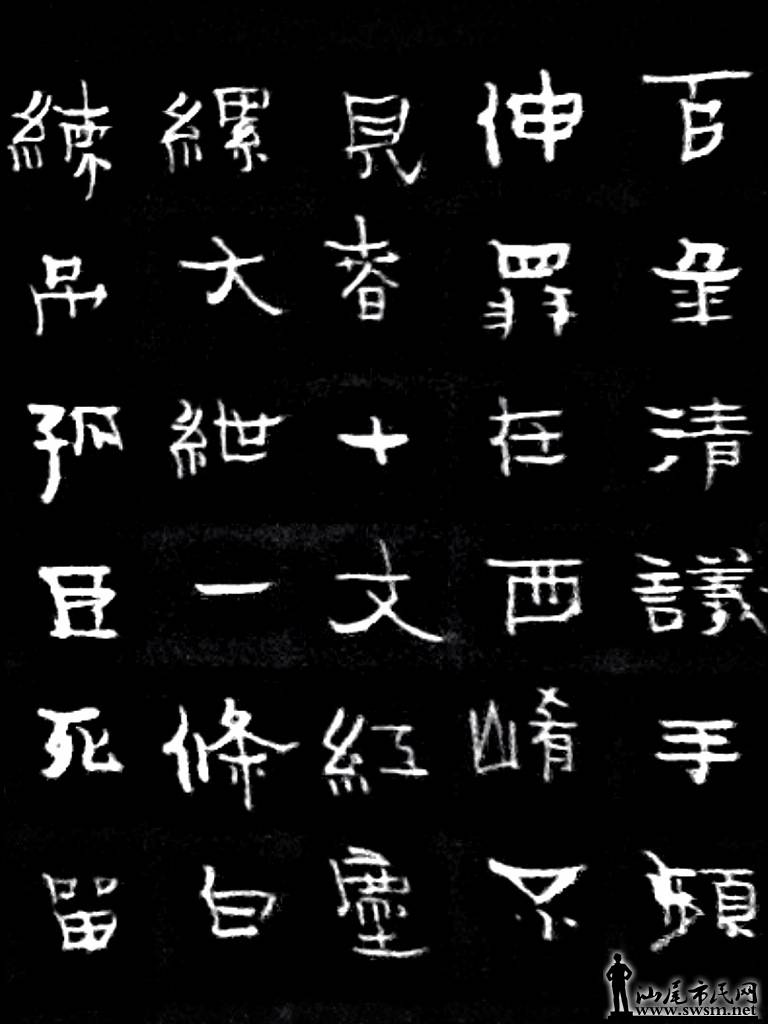 百清議手頻
伸罪在西崤不
見春十文紅塵
縲大紲一條白
練吊孤臣死留
汕尾市民网
www.swsm.net